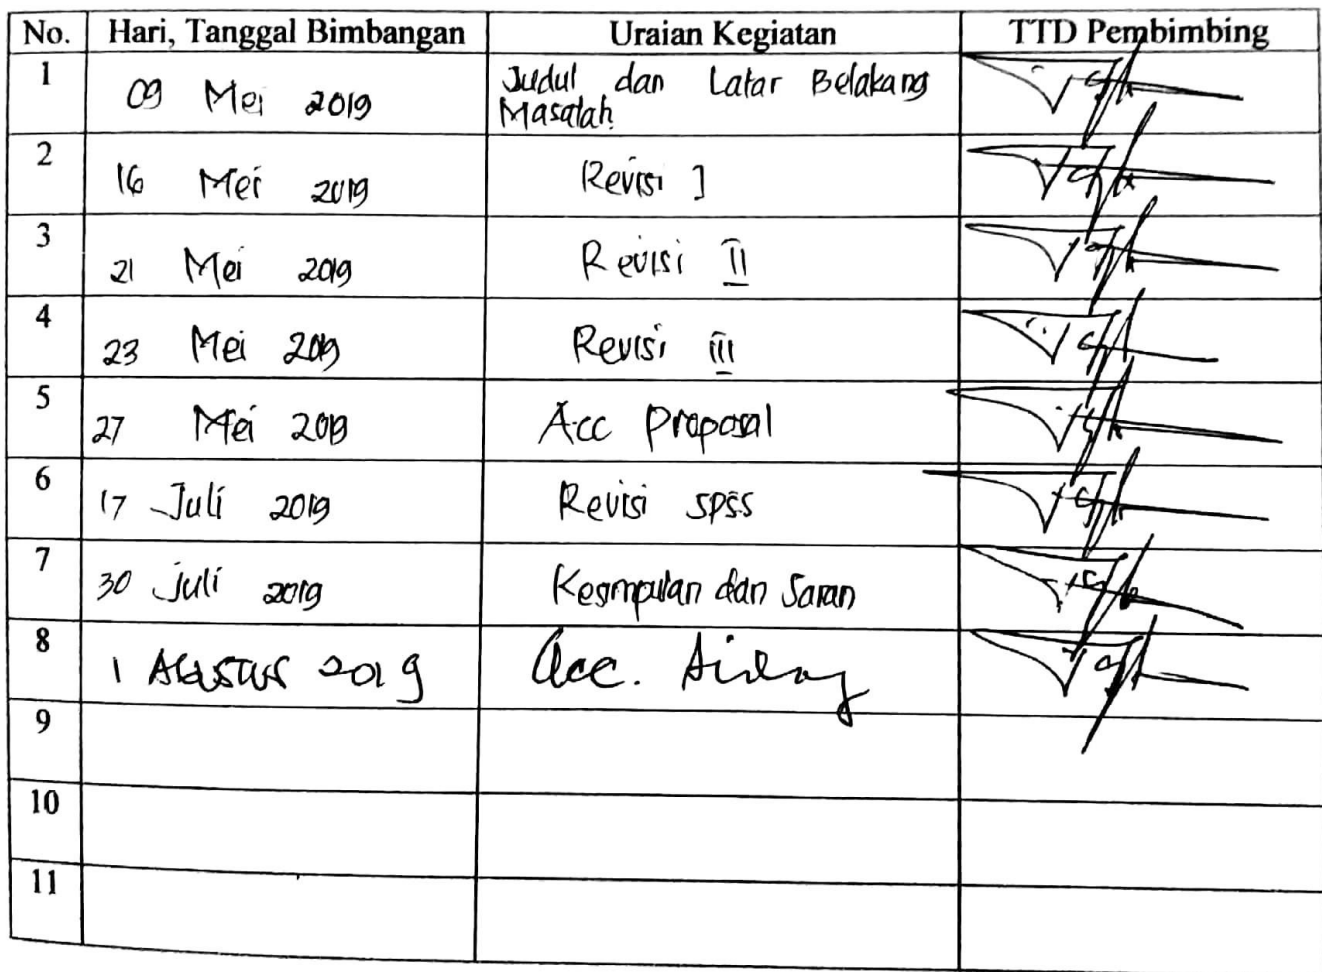 No. Hari, Tanggal Bimbangan Uraian Kegiatan TTD Pembimbing
1 09 Mei 2019 Judul dan Latar Belakang
Masalah
2 16 Mei 2019 Revisi I
3 21 Mei 2019 Revisi II
4 23 Mei 2019 Revisi III
5 27 Mei 2019 Acc Proposal
6 17 Juli 2019 Revisi SPSS
7 30 Juli 2019 Kesimpulan dan Saran
8 1 Agustus 2019 Acc. Sidang
9
10
11